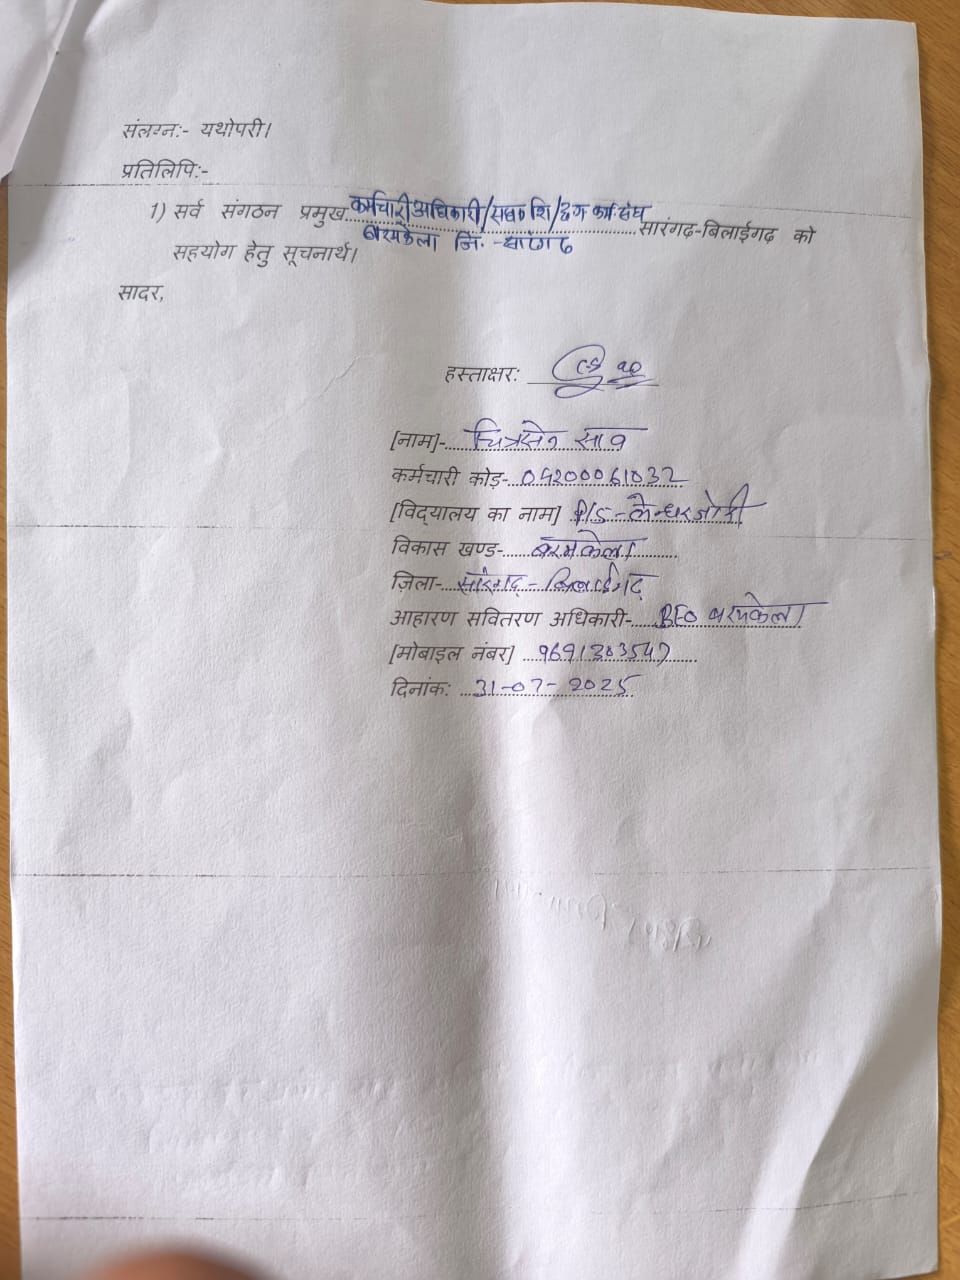 संलग्न:- यथोपरी।
प्रतिलिपि:-
1) सर्व संगठन प्रमुख कर्मचारी अधिकारी/ सारंगढ़-बिलाईगढ़ को
बरमकेला जि.-सारंगढ़
सहयोग हेतु सूचनार्थ।
सादर,
हस्ताक्षर:
[नाम]- चित्रसेन साव
कर्मचारी कोड़- 04200061032
[विद्यालय का नाम] P/S-लेन्धरजोरी
विकास खण्ड- बरमकेला
ज़िला- सारंगढ़-बिलाईगढ़
आहारण सवितरण अधिकारी- BEO बरमकेला
[मोबाइल नंबर] 9691303547
दिनांक: 31-07-2025